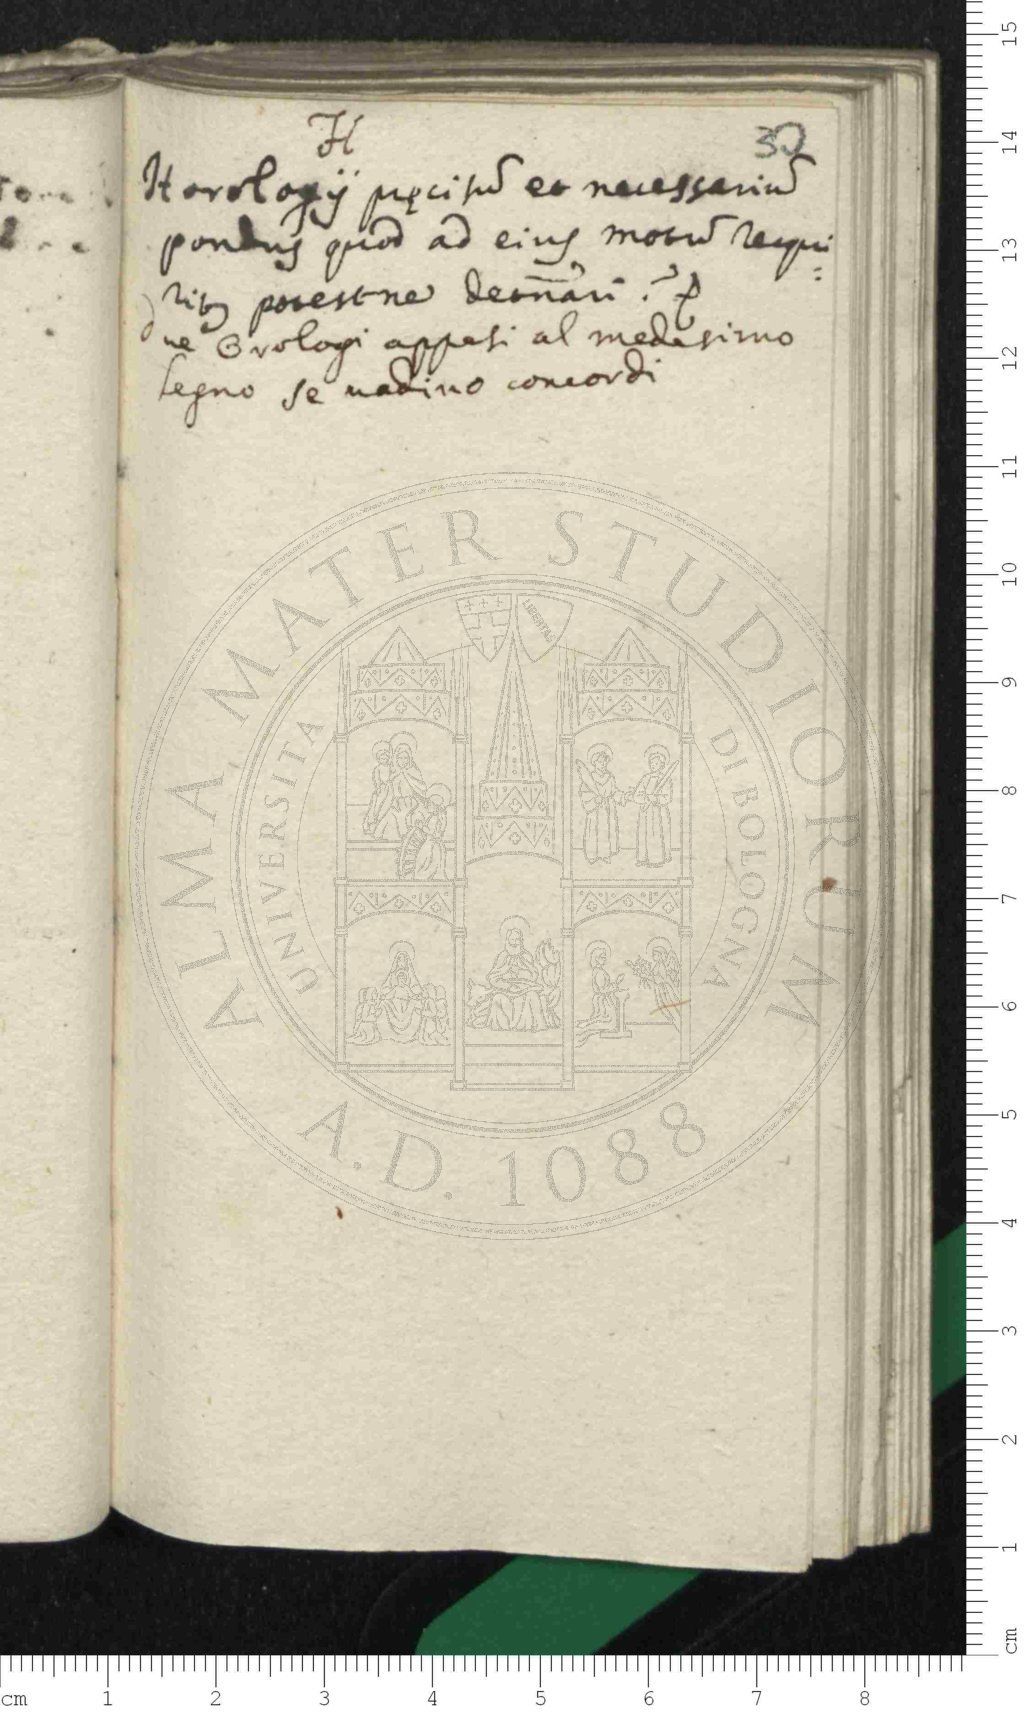 H
30
Horologij pręcisū et necessariū
pondus quod ad eius motū requi
ritur potest ne
ne Orologi appesi al medesimo
legno se uadino concordi
ALMA MATER STUDIORUM
UNIVERSITA DI BOLOGNA
LIBERTAS
A.D. 1088
15
14
13
12
11
10
9
8
7
6
5
4
3
2
1
cm
cm 1 2 3 4 5 6 7 8